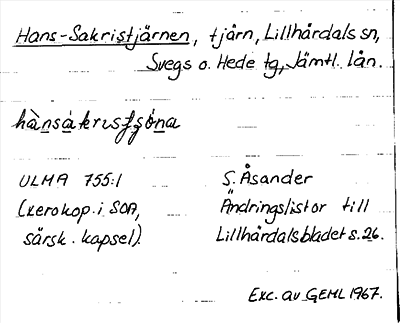 Hans-Sakristjärnen, tjärn, Lillhärdals sn,
Svegs o. Hede tg, Jämtl. län.
ULMA 755:1
(xerokop. i SOA,
särsk. kapsel).
S. Åsander
Ändringslistor till
Lillhärdalsbladet s. 26.
Exc. av GEHL 1967.